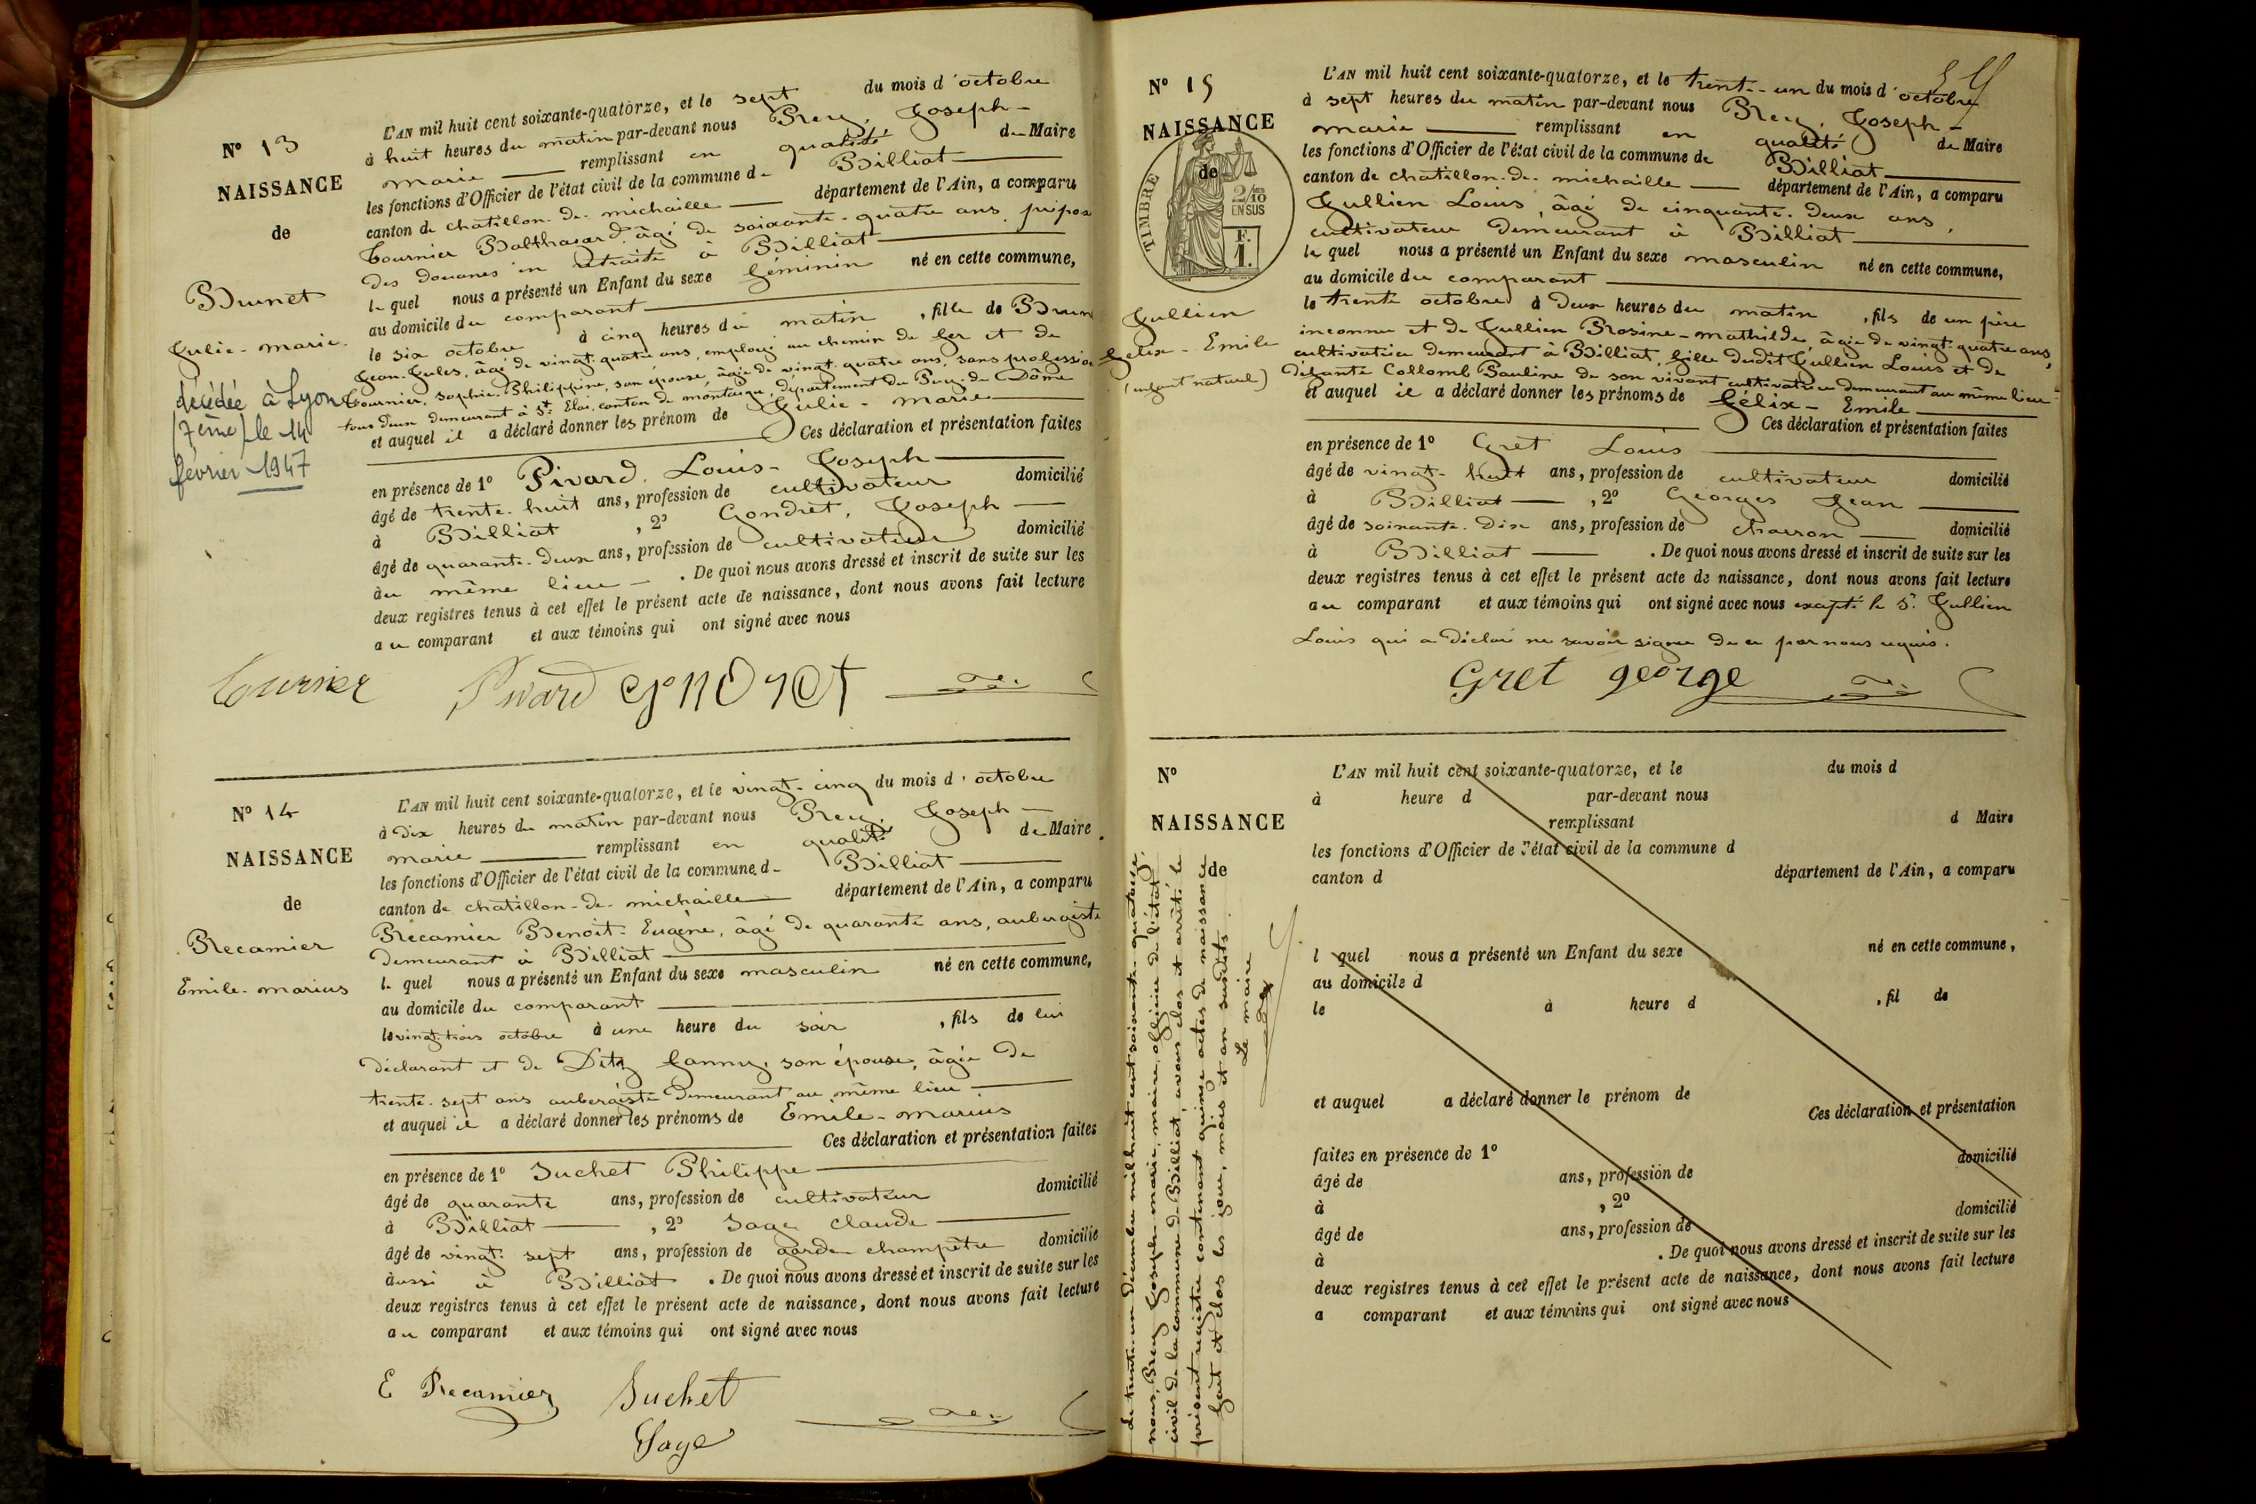 N° 13
NAISSANCE
de
Brunet
Julie-marie.
décédée à Lyon
(7ème) le 14
février 1947
L'AN mil huit cent soixante-quatorze, et le sept du mois d'octobre
à huit heures du matin par-devant nous Rey, Joseph-
marie remplissant en qualité de Maire
les fonctions d'Officier de l'état civil de la commune de Billiat
canton de chatillon-de-michaille département de l'Ain, a comparu
Tournier Balthazard âgé de soixante-quatre ans, préposé
des douanes en retraite à Billiat
le quel nous a présenté un Enfant du sexe féminin né en cette commune,
au domicile du comparant
le six octobre à cinq heures du matin, fille de Brunet
Jean-Jules, âgé de vingt-quatre ans, employé au chemin de fer et de
Tournier Sophie-Philippine, son épouse, âgée de vingt-quatre ans, sans profession
tous deux demeurant à St Eloi, canton de montaigu, département du Puy-de-Dôme
et auquel il a déclaré donner les prénom de Julie-marie
Ces déclaration et présentation faites
en présence de 1° Pivard, Louis-Joseph
âgé de trente-huit ans, profession de cultivateur domicilié
à Billiat, 2° Gondret, Joseph
âgé de quarante-deux ans, profession de cultivateur domicilié
au même lieu. De quoi nous avons dressé et inscrit de suite sur les
deux registres tenus à cet effet le présent acte de naissance, dont nous avons fait lecture
au comparant et aux témoins qui ont signé avec nous
Turnier Pivard gondret
N° 14
NAISSANCE
de
Recamier
Emile-marius
L'AN mil huit cent soixante-quatorze, et le vingt-cinq du mois d'octobre
à dix heures du matin par-devant nous Rey, Joseph-
marie remplissant en qualité de Maire
les fonctions d'Officier de l'état civil de la commune de Billiat
canton de chatillon-de-michaille département de l'Ain, a comparu
Récamier Benoit-Eugène, âgé de quarante ans, aubergiste
demeurant à Billiat
le quel nous a présenté un Enfant du sexe masculin né en cette commune,
au domicile du comparant
le vingt-trois octobre à une heure du soir, fils de lui
déclarant et de Ditz fanny, son épouse, âgée de
trente-sept ans aubergiste demeurant au même lieu
et auquel il a déclaré donner les prénoms de Emile-marius
Ces déclaration et présentation faites
en présence de 1° Suchet Philippe
âgé de quarante ans, profession de cultivateur domicilié
à Billiat, 2° Sage claude
âgé de vingt-sept ans, profession de garde champêtre domicilié
aussi à Billiat. De quoi nous avons dressé et inscrit de suite sur les
deux registres tenus à cet effet le présent acte de naissance, dont nous avons fait lecture
au comparant et aux témoins qui ont signé avec nous
E Recamier Suchet
Sage
N° 15
NAISSANCE
de
TIMBRE
2/10
EN SUS
F.
1.
Jullien
felix-Emile
(enfant naturel)
L'AN mil huit cent soixante-quatorze, et le trente-un du mois d'octobre
à sept heures du matin par-devant nous Rey, Joseph-
marie remplissant en qualité de Maire
les fonctions d'Officier de l'état civil de la commune de Billiat
canton de chatillon-de-michaille département de l'Ain, a comparu
Jullien Louis, âgé de cinquante-deux ans,
cultivateur demeurant à Billiat
le quel nous a présenté un Enfant du sexe masculin né en cette commune,
au domicile du comparant
le trente octobre à deux heures du matin, fils de un père
inconnu et de Jullien Rosine-mathilde, âgée de vingt-quatre ans,
cultivatrice demeurant à Billiat, fille dudit Jullien Louis et de
défunte Collomb Pauline de son vivant cultivatrice demeurant au même lieu
et auquel il a déclaré donner les prénoms de félix-Emile
Ces déclaration et présentation faites
en présence de 1° Gret Louis
âgé de vingt-huit ans, profession de cultivateur domicilié
à Billiat, 2° Georges Jean
âgé de soixante-dix ans, profession de charron domicilié
à Billiat. De quoi nous avons dressé et inscrit de suite sur les
deux registres tenus à cet effet le présent acte de naissance, dont nous avons fait lecture
au comparant et aux témoins qui ont signé avec nous excepté le sr. Jullien
Louis qui a déclaré ne savoir signer de ce par nous requis.
Gret george
N°
NAISSANCE
de
L'AN mil huit cent soixante-quatorze, et le du mois d
à heure d par-devant nous
remplissant d Maire
les fonctions d'Officier de l'état civil de la commune d
canton d département de l'Ain, a comparu
l quel nous a présenté un Enfant du sexe né en cette commune,
au domicile d
le à heure d, fil de
et auquel a déclaré donner le prénom de
Ces déclaration et présentation
faites en présence de 1°
âgé de ans, profession de domicilié
à, 2°
âgé de ans, profession de domicilié
à. De quoi nous avons dressé et inscrit de suite sur les
deux registres tenus à cet effet le présent acte de naissance, dont nous avons fait lecture
a comparant et aux témoins qui ont signé avec nous
Le trente-un décembre mil huit cent soixante-quatorze,
nous, Rey, Joseph-marie, maire, officier de l'état
civil de la commune de Billiat, avons clos et arrêté le
présent registre contenant quinze actes de naissance
fait et clos les jour, mois et an susdits.
Le maire